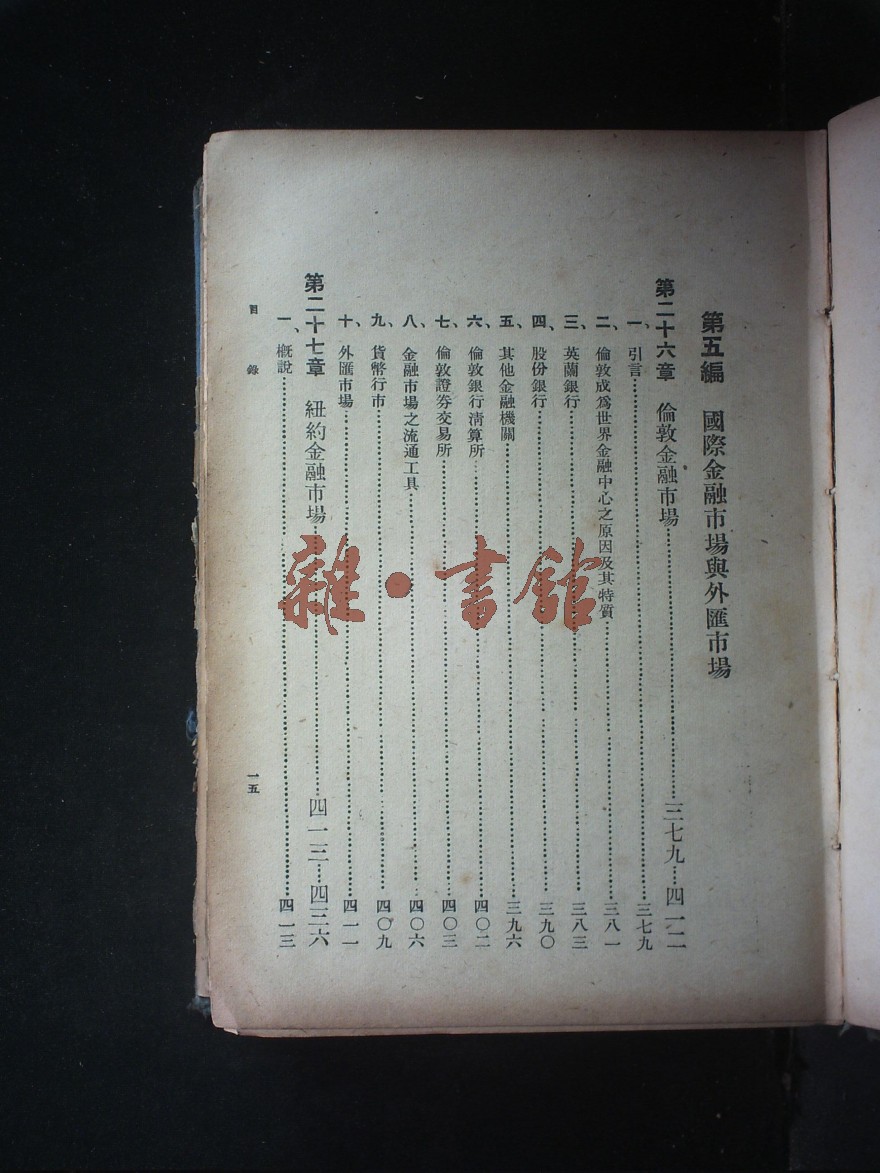 第五編　國際金融市場與外匯市場
第二十六章　倫敦金融市場……三七九…四一二
一、引言……三七九
二、倫敦成為世界金融中心之原因及其特質……三八一
三、英蘭銀行……三八三
四、股份銀行……三九〇
五、其他金融機關……三九六
六、倫敦銀行淸算所……四〇二
七、倫敦證券交易所……四〇三
八、金融市場之流通工具……四〇六
九、貨幣行市……四〇九
十、外匯市場……四一一
第二十七章　紐約金融市場……四一三…四三六
一、概說……四一三
目錄
一五
雜·書館